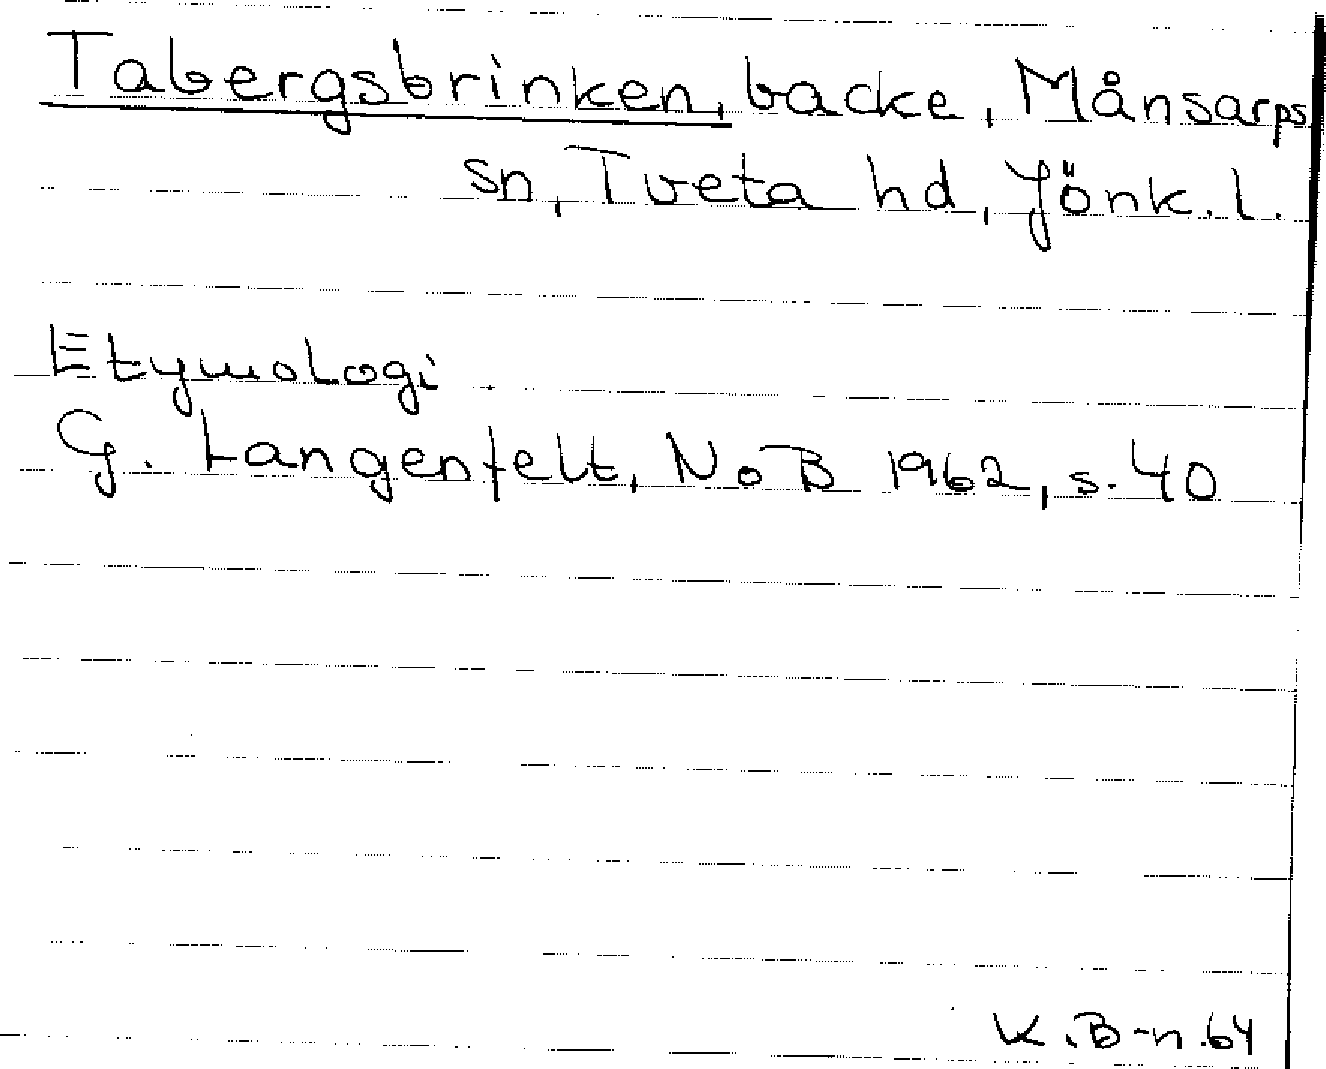 Tabergsbrinken, backe, Månsarps
sn, Tveta hd, Jönk. l.
Etymologi
G. Langenfelt, NoB 1962, s. 40
K.B-n.64